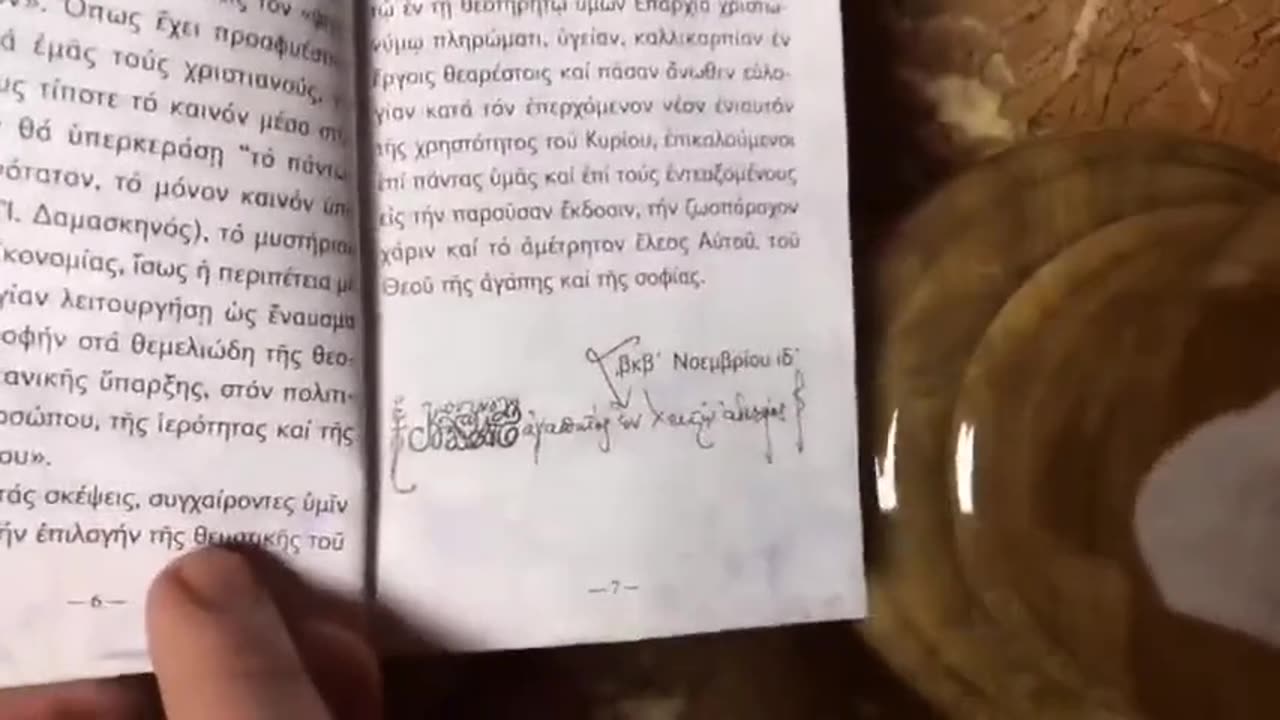 Ὅπως ἔχει
ἐμᾶς τούς χριστιανούς,
τίποτε τό καινόν μέσα
θά ὑπερκεράσῃ "τό
τό μόνον καινόν
Δαμασκηνός), τό
ἴσως ἡ περιπέτεια
λειτουργήσῃ ὡς ἔναυσμα
στά θεμελιώδη τῆς θεο-
ὕπαρξης, στόν πολιτι-
τῆς ἱερότητας καί τῆς
ου».
σκέψεις, συγχαίροντες ὑμῖν
ἐπιλογήν τῆς θεματικῆς τοῦ
—6—
ἐν τῇ θεοτηρήτῳ ὑμῶν Ἐπαρχίᾳ χριστω-
νύμῳ πληρώματι, ὑγείαν, καλλικαρπίαν ἐν
ἔργοις θεαρέστοις καί πᾶσαν ἄνωθεν εὐλο-
γίαν κατά τόν ἐπερχόμενον νέον ἐνιαυτόν
τῆς χρηστότητος τοῦ Κυρίου, ἐπικαλούμενοι
ἐπί πάντας ὑμᾶς καί ἐπί τούς ἐντευξομένους
εἰς τήν παροῦσαν ἔκδοσιν, τήν ζωοπάροχον
χάριν καί τό ἀμέτρητον ἔλεος Αὐτοῦ, τοῦ
Θεοῦ τῆς ἀγάπης καί τῆς σοφίας.
͵βκβ΄ Νοεμβρίου ιδ΄
ἀγαπητός ἐν Χριστῷ ἀδελφός
—7—